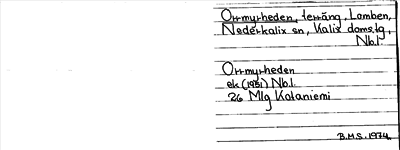 Orrmyrheden, terräng, Lomben,
Nederkalix sn, Kalix doms.lg,
Nb.l.
Orrmyrheden
ek (1951) Nb.l.
26 Mlg Kataniemi
B.M.S. 1974.